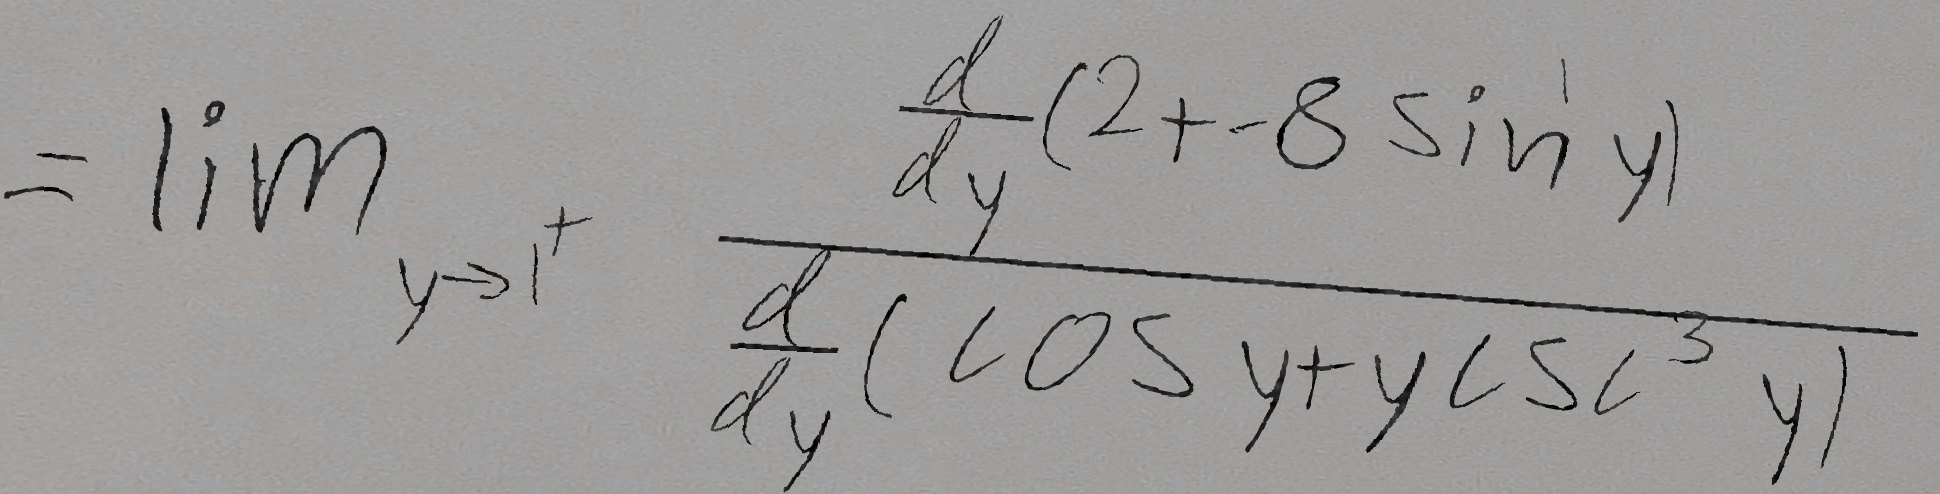 = \lim_{y \to 1^+} \frac{\frac{d}{dy}(2 + -8 \sin^1 y)}{\frac{d}{dy}(\cos y + y \csc^3 y)}